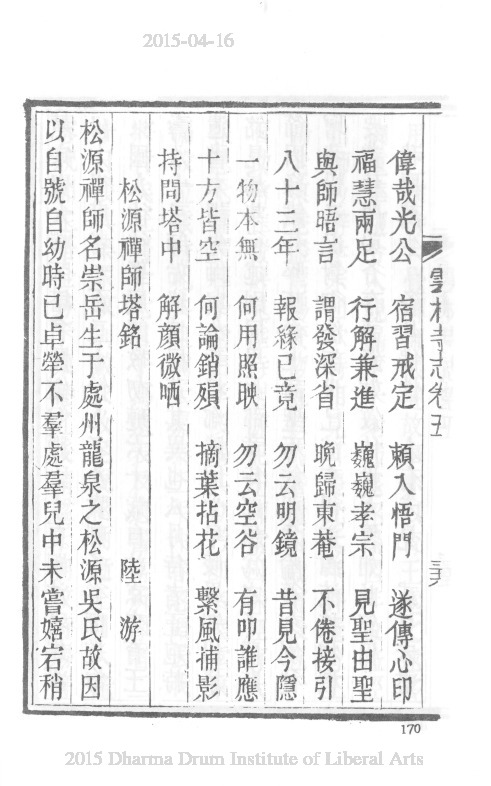 2015-04-16
雲林寺志卷五
偉哉光公　宿習戒定　頼入悟門　遂傳心印
福慧兩足　行解兼進　巍巍孝宗　見聖由聖
與師晤言　謂發深省　晚歸東菴　不倦接引
八十三年　報緣已竟　勿云明鏡　昔見今隱
一物本無　何用照映　勿云空谷　有叩誰應
十方皆空　何論銷殞　摘葉拈花　繫風捕影
持問塔中　解顏微哂
松源禪師塔銘　陸游
松源禪師名崇岳生于處州龍泉之松源吳氏故因
以自號自幼時已卓犖不羣處羣兒中未嘗嬉宕稍
170
2015 Dharma Drum Institute of Liberal Arts